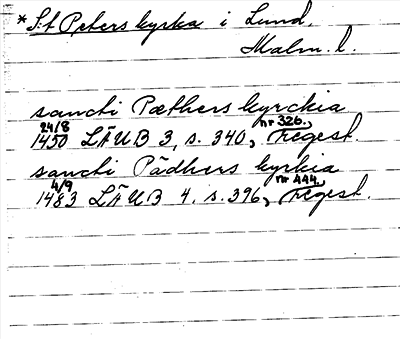 * S:t Peters kyrka i Lund.
Malm. l.
sancti Pæthers kyrckia
24/8 1450 LÄUB 3, s. 340, nr 326., Regest.
sancti Pädhers kyrkia
4/9 1483 LÄUB 4. s. 396, nr 444, Regest.